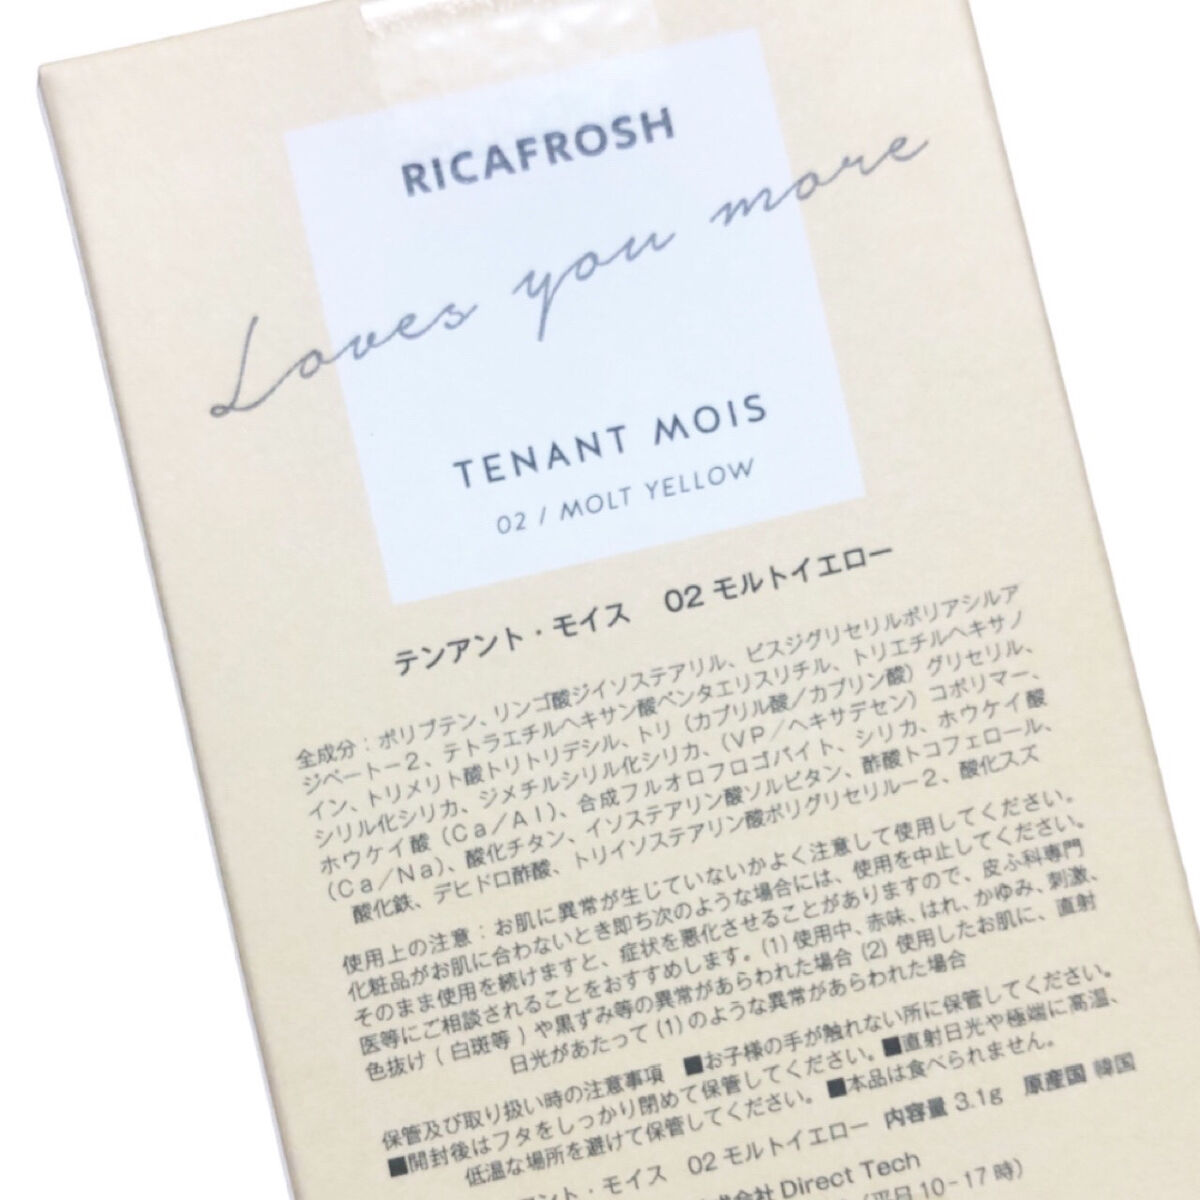 RICAFROSH
Loves you more
TENANT MOIS
02 / MOLT YELLOW
テンアント・モイス 02 モルトイエロー
全成分：ポリブテン、リンゴ酸ジイソステアリル、ビスジグリセリルポリアシルア
ジペート－2、テトラエチルヘキサン酸ペンタエリスリチル、トリエチルヘキサノ
イン、トリメリト酸トリトリデシル、トリ（カプリル酸／カプリン酸）グリセリル、
シリル化シリカ、ジメチルシリル化シリカ、（VP／ヘキサデセン）コポリマー、
ホウケイ酸（Ca／Al）、合成フルオロフロゴパイト、シリカ、ホウケイ酸
（Ca／Na）、酸化チタン、イソステアリン酸ソルビタン、酢酸トコフェロール、
酸化鉄、デヒドロ酢酸、トリイソステアリン酸ポリグリセリル－2、酸化スズ
使用上の注意：お肌に異常が生じていないかよく注意して使用してください。
化粧品がお肌に合わないとき即ち次のような場合には、使用を中止してください。
そのまま使用を続けますと、症状を悪化させることがありますので、皮ふ科専門
医等にご相談されることをおすすめします。(1) 使用中、赤味、はれ、かゆみ、刺激、
色抜け ( 白斑等 ) や黒ずみ等の異常があらわれた場合 (2) 使用したお肌に、直射
日光があたって (1) のような異常があらわれた場合
保管及び取り扱い時の注意事項 ■お子様の手が触れない所に保管してください。
■開封後はフタをしっかり閉めて保管してください。■直射日光や極端に高温、
低温な場所を避けて保管してください。 ■本品は食べられません。
アント・モイス 02 モルトイエロー 内容量 3.1g 原産国 韓国
式会社 Direct Tech
（平日 10 - 17 時）